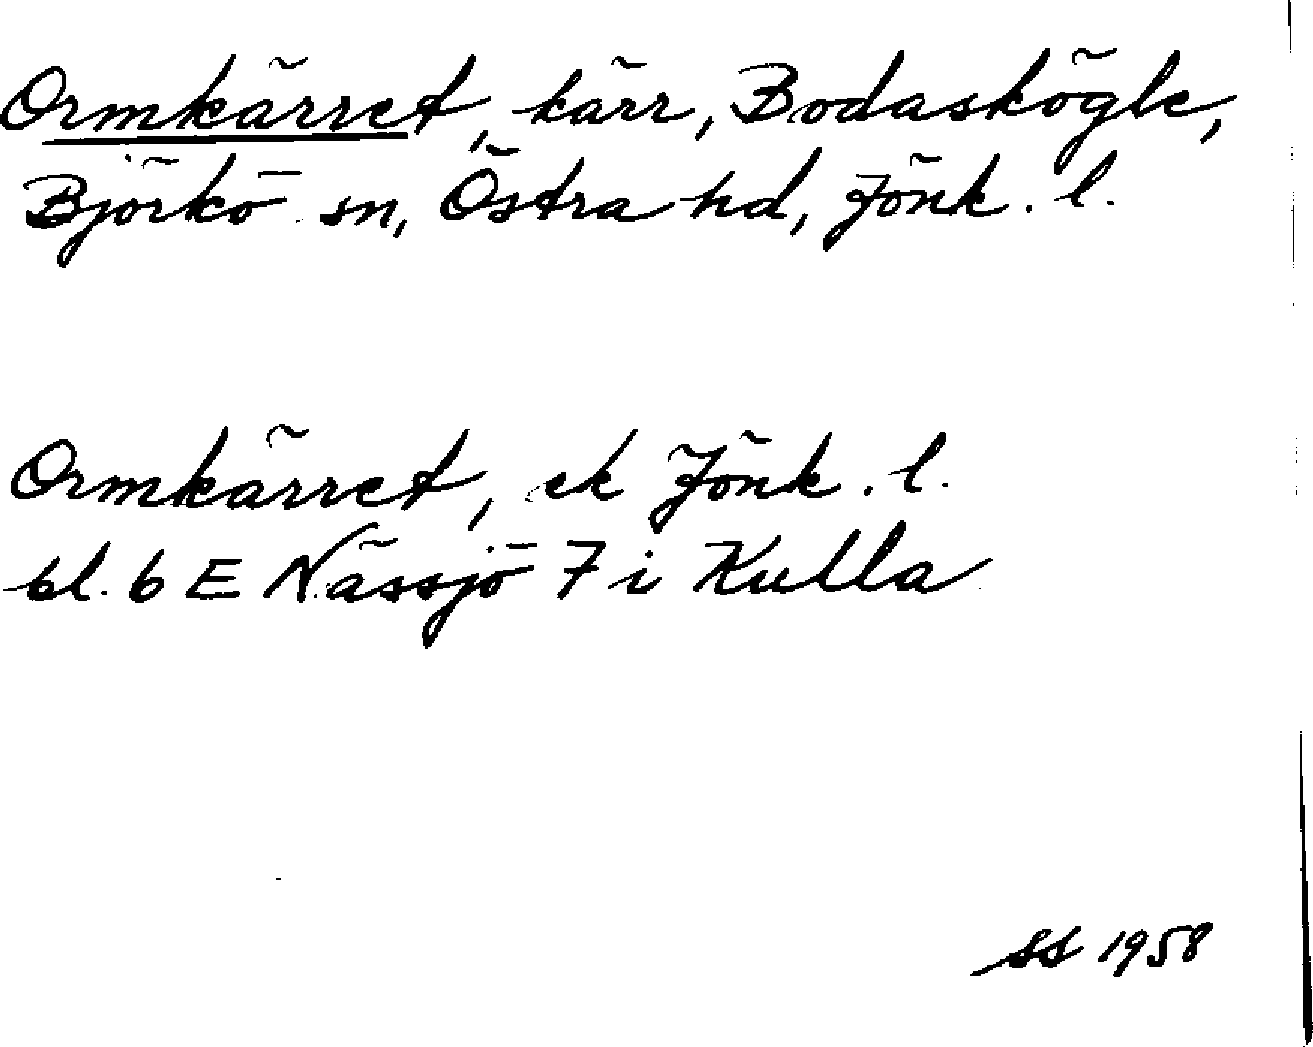 Ormkärret, kärr, Bodaskögle,
Björkö sn, Östra hd, Jönk. l.
Ormkärret, ek Jönk. l.
bl. 6 E Nässjö 7 i Kulla
SS 1958